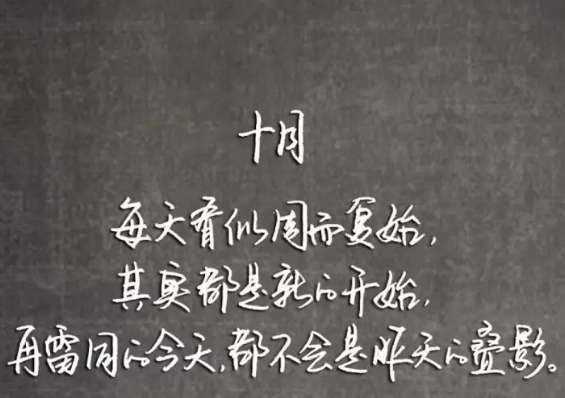 十月
每天看似周而复始，
其实都是新的开始，
再雷同的今天，都不会是昨天的叠影。